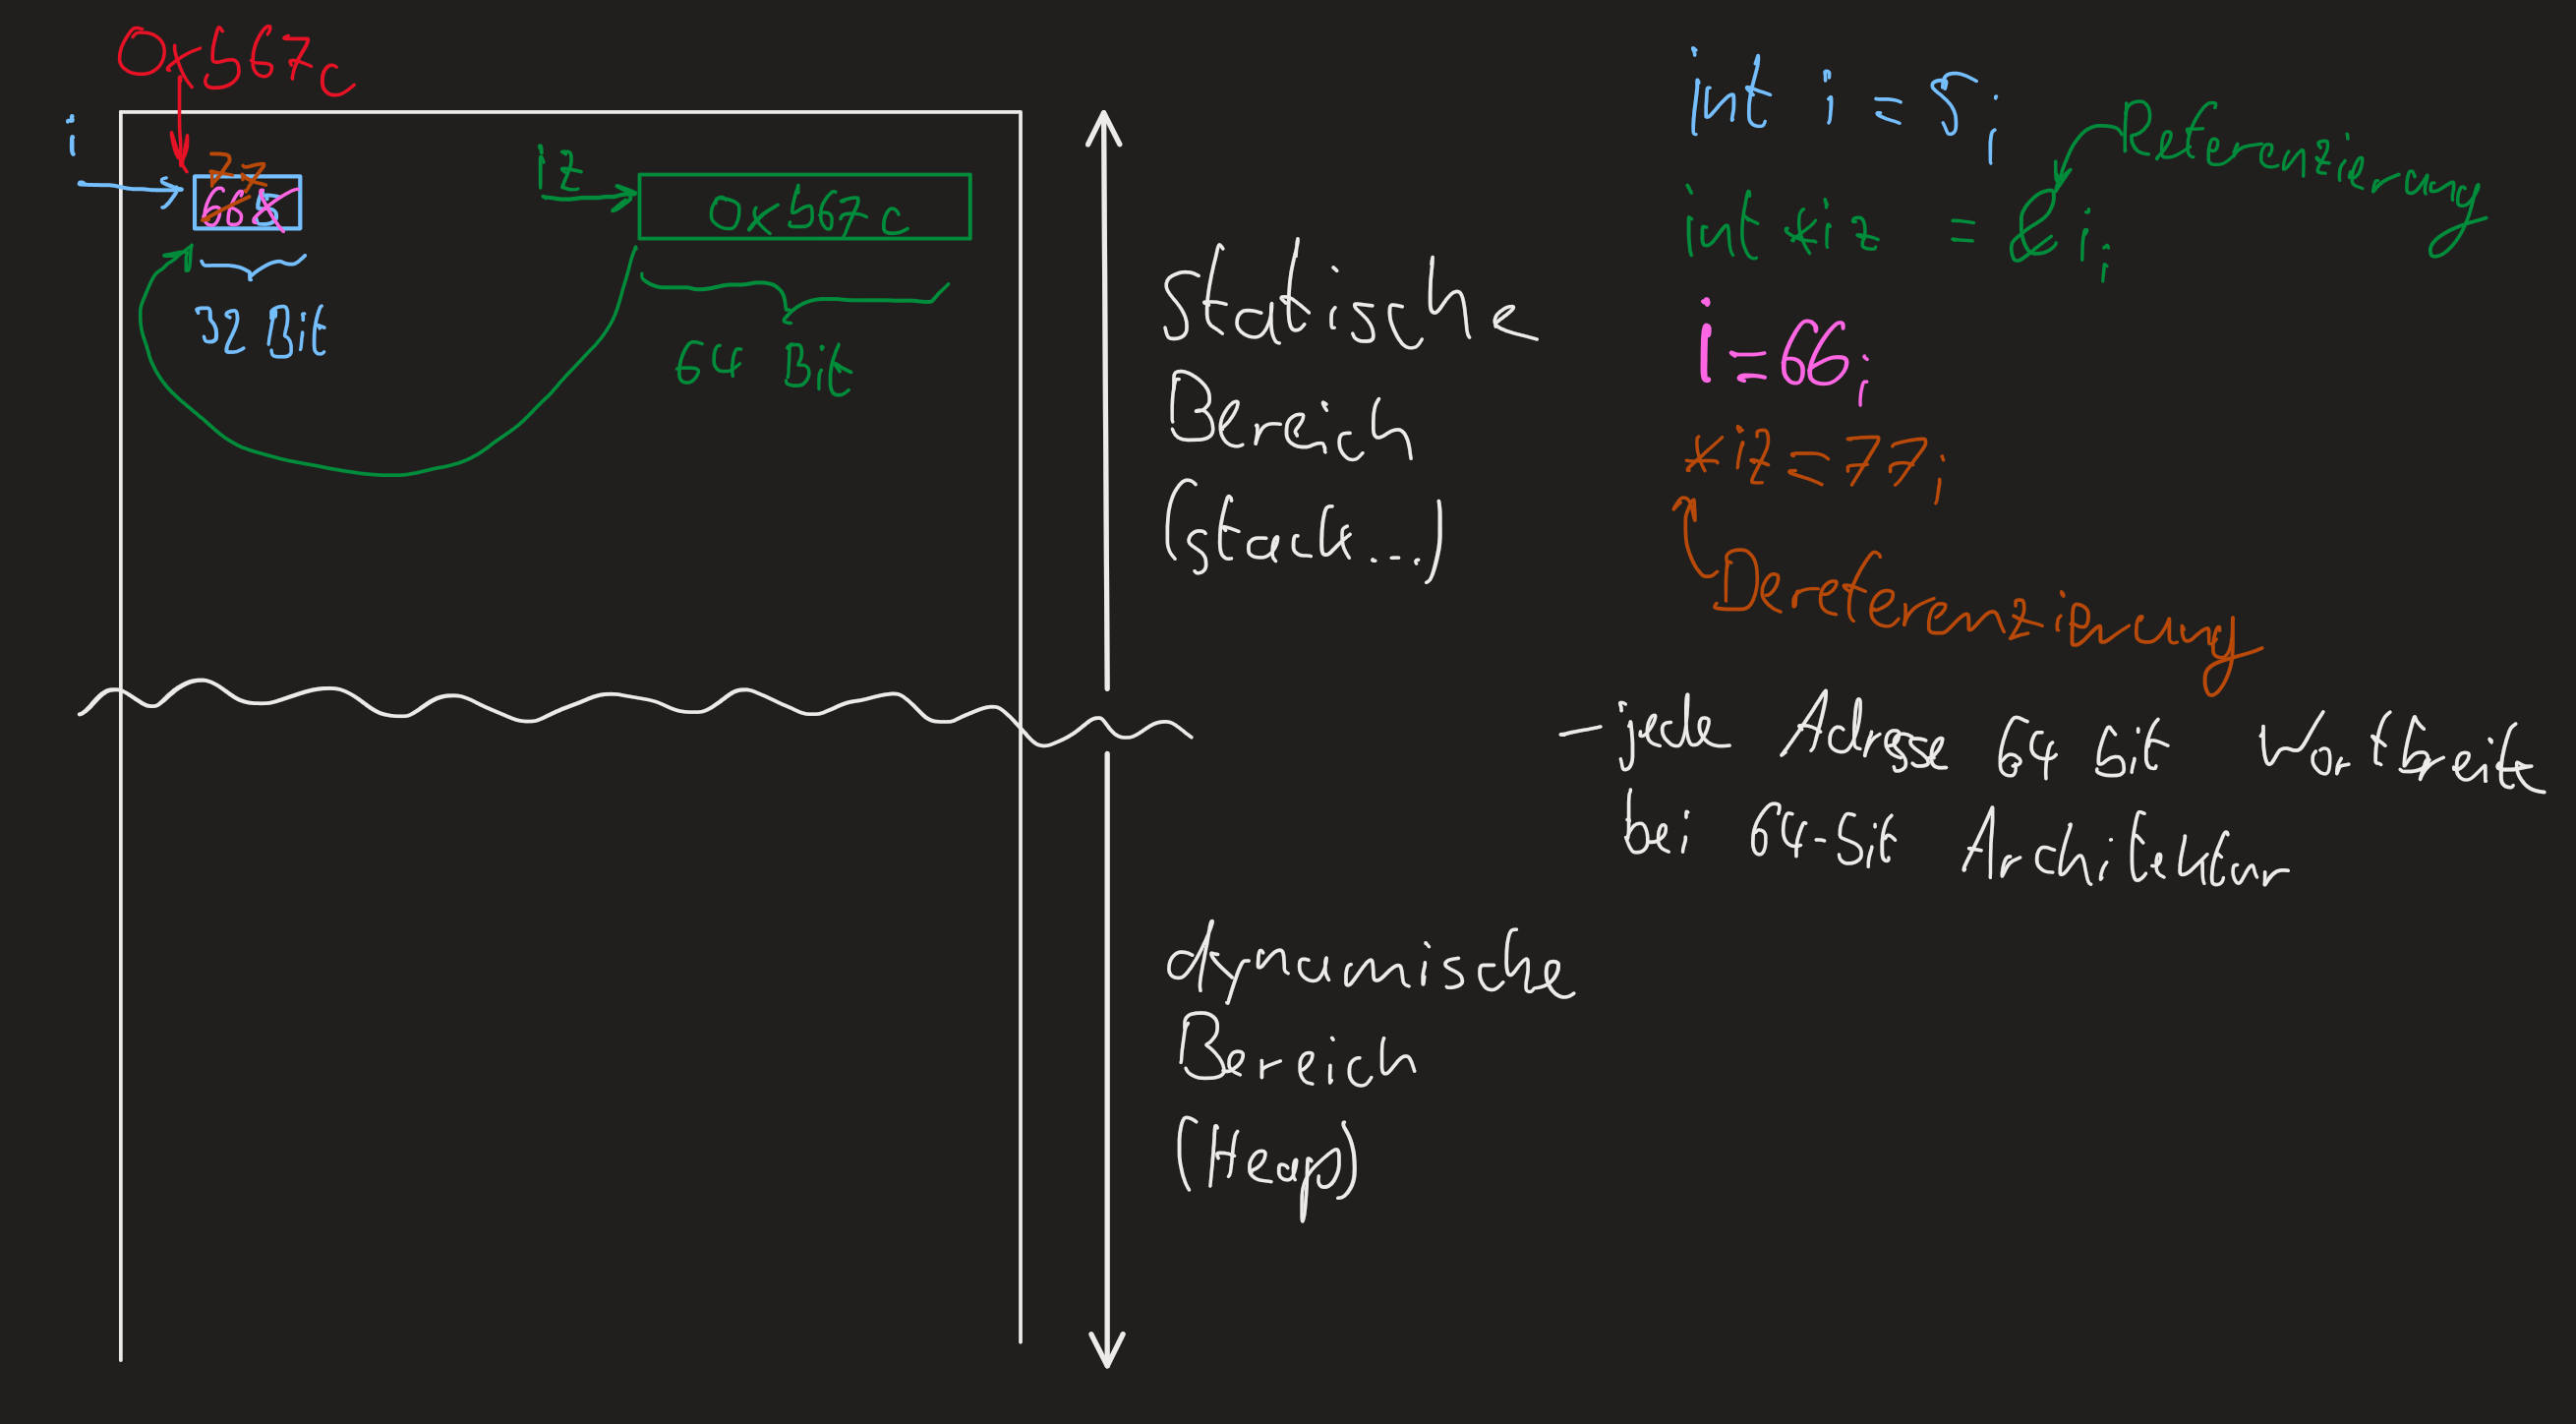 0x567c
i
77
66 5
32 Bit
iz
0x567c
64 Bit
statische
Bereich
(stack...)
dynamische
Bereich
(Heap)
int i = 5;
Referenzierung
int *iz = &i;
i=66;
*iz=77;
Dereferenzierung
- jede Adresse 64 bit Wortbreite
bei 64-bit Architektur